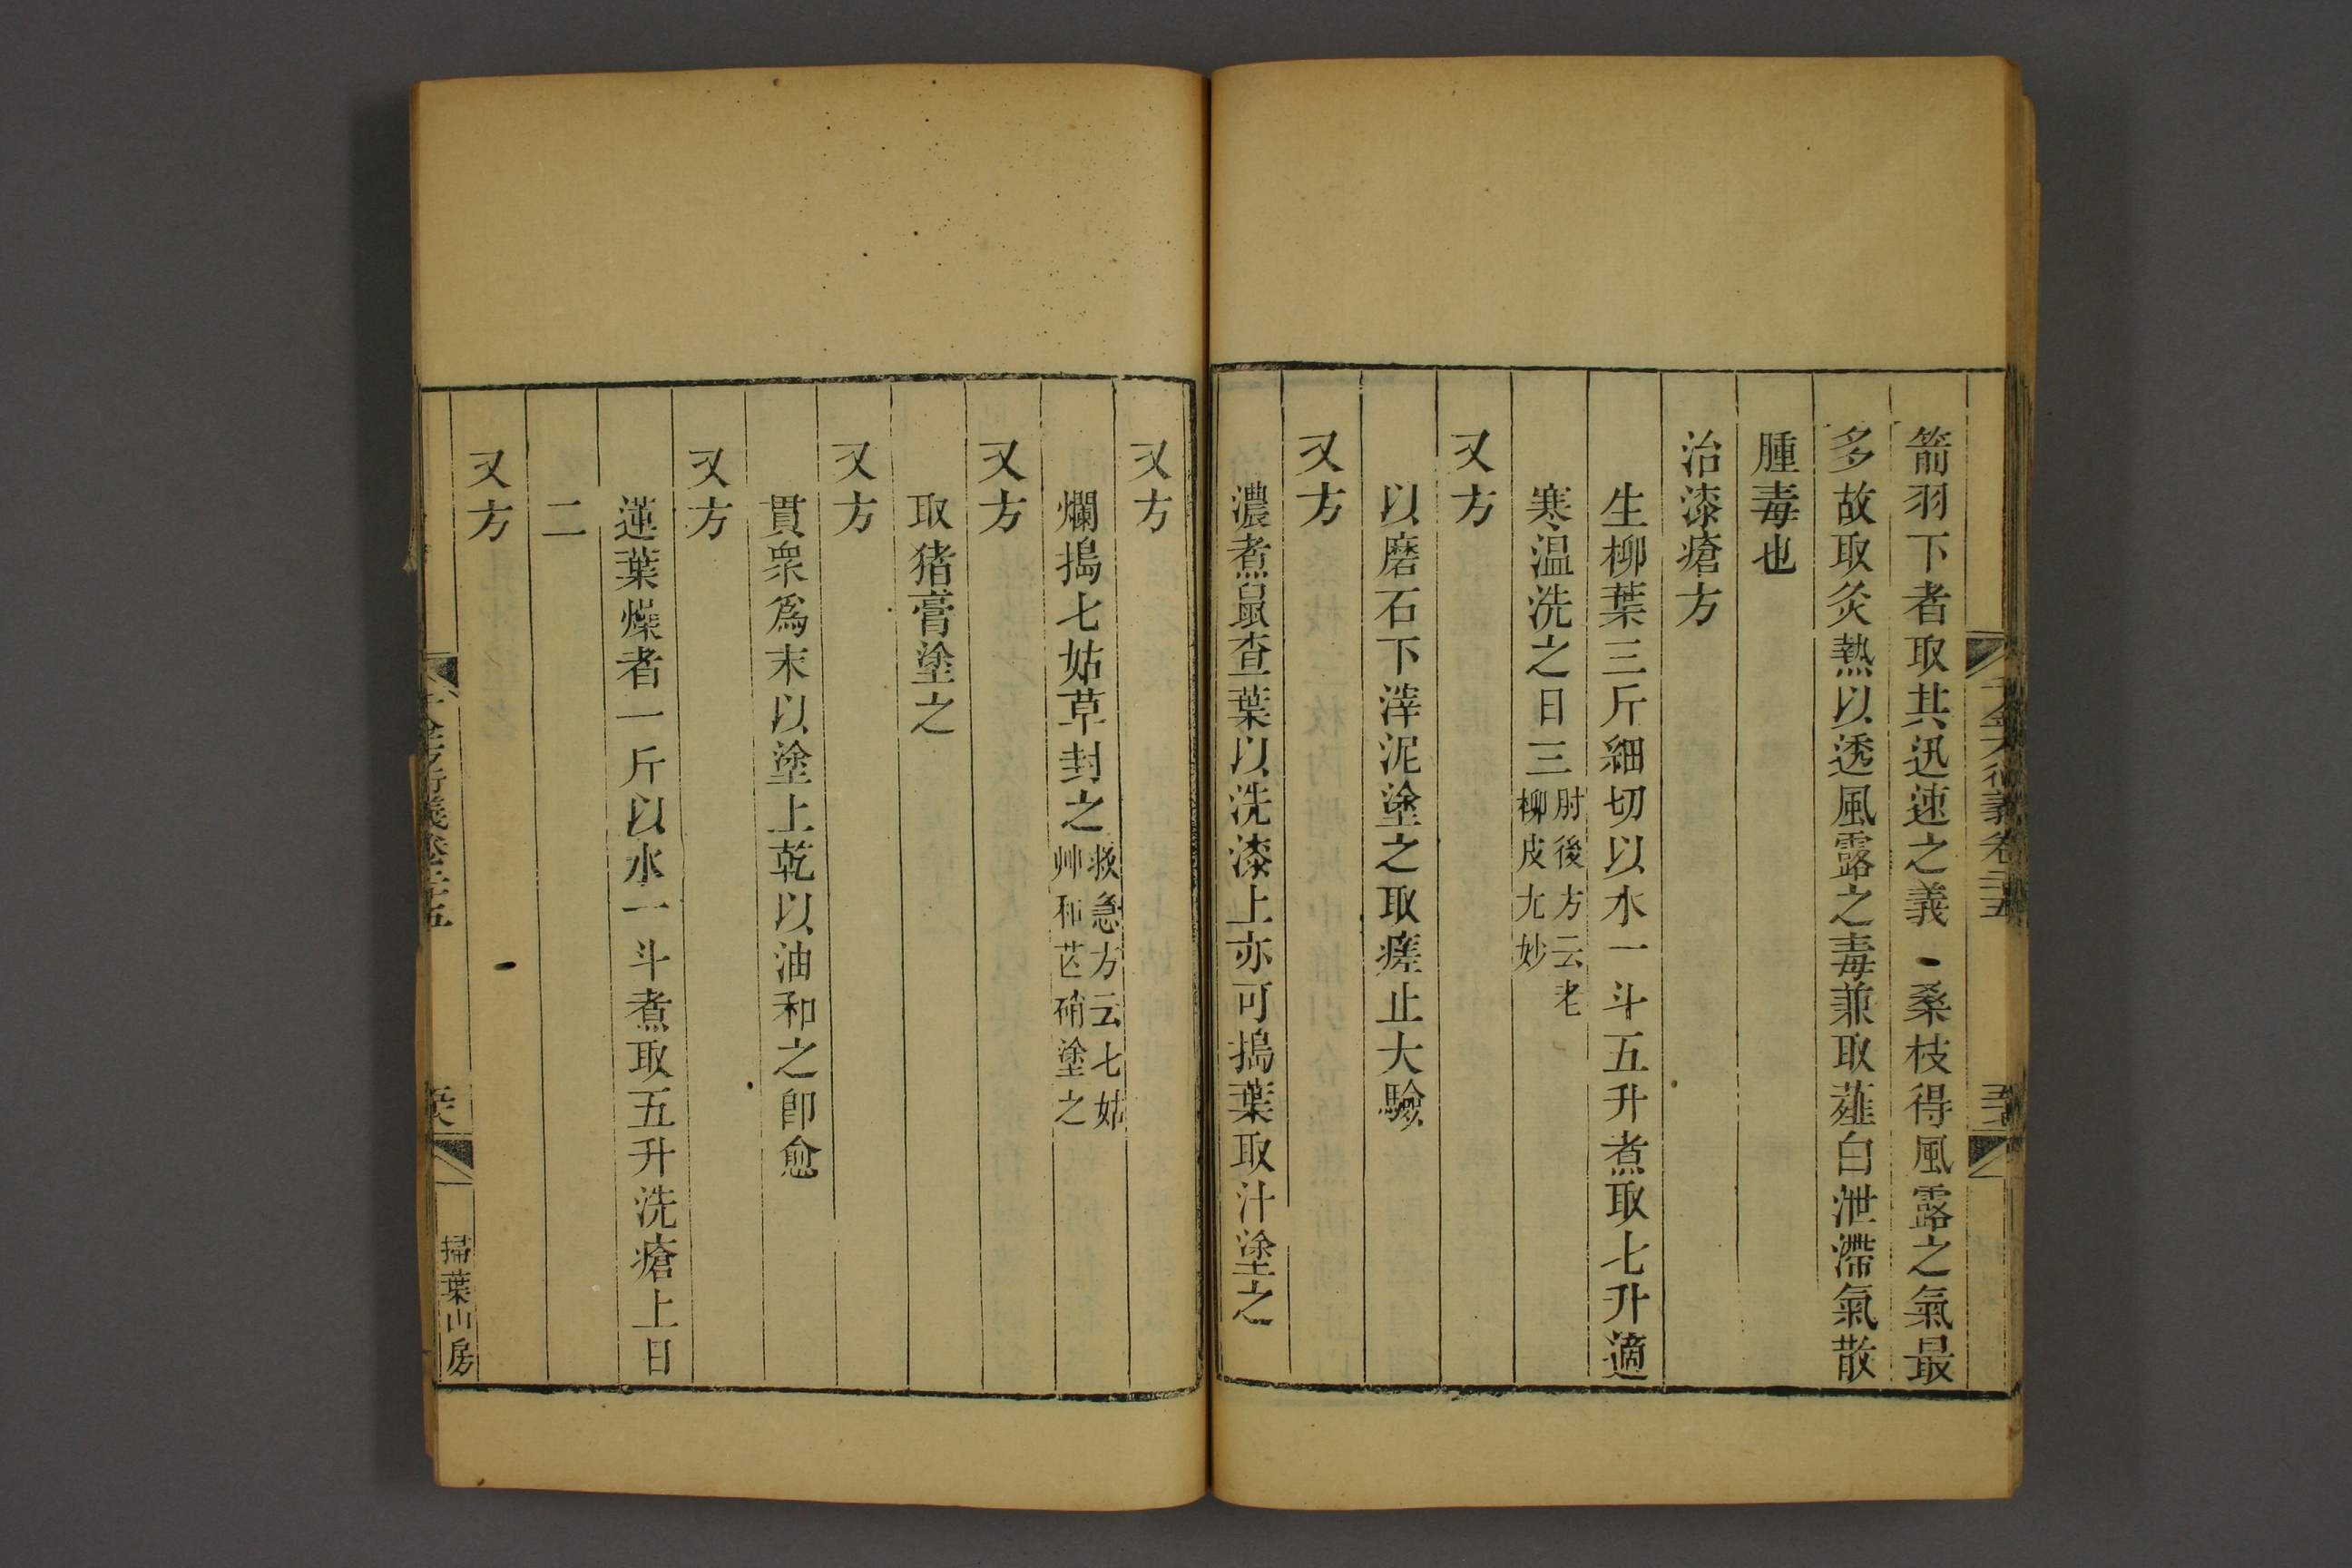 箭羽下者取其迅速之義桑枝得風露之氣最
多故取灸熱以透風露之毒兼取薤白泄滯氣散
腫毒也
治漆瘡方
生柳葉三斤細切以水一斗五升煮取七升適
寒温洗之日三肘後方云老柳皮尢妙
又方
以磨石下滓泥塗之取瘥止大驗
又方
濃煮鼠查葉以洗漆上亦可搗葉取汁塗之
又方
爛搗七姑草封之救急方云七姑艸和芒硝塗之
又方
取猪膏塗之
又方
貫衆爲末以塗上乾以油和之卽愈
又方
蓮葉燥者一斤以水一斗煮取五升洗瘡上日
二
又方
掃葉山房